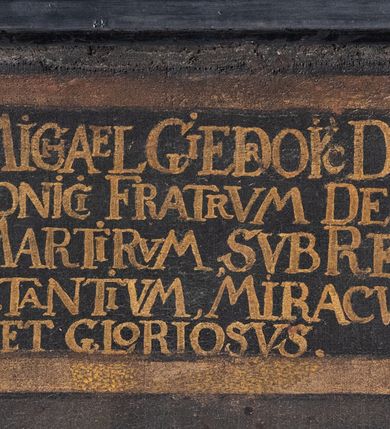 MICHAEL GIEDROYC D
ONICI FRATRVM DE
MARTIRVM, SVB RE
TANTIVM, MIRACV
ET GLORIOSVS.